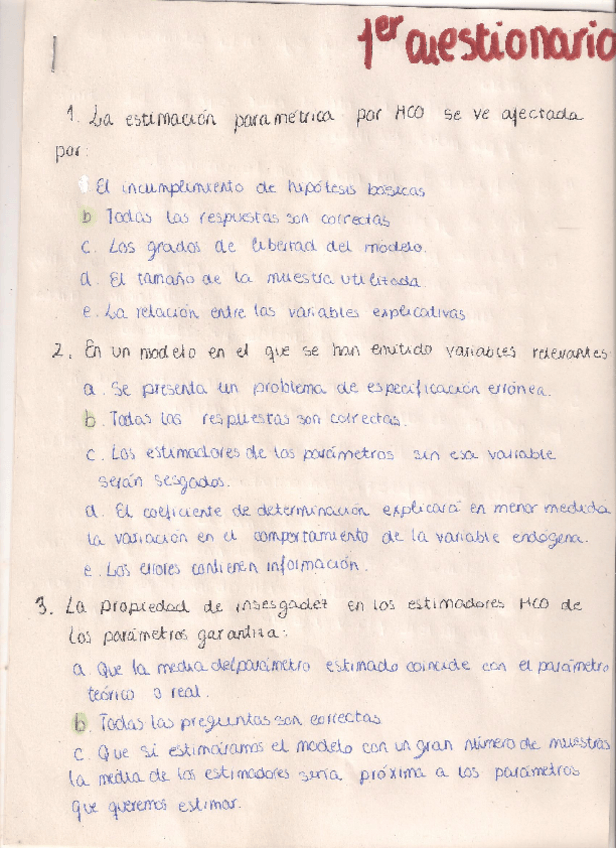 1er cuestionario
1. La estimación paramétrica por MCO se ve afectada
por:
El incumplimiento de hipótesis básicas
b Todas las respuestas son correctas
c. Los grados de libertad del modelo.
d. El tamaño de la muestra utilizada
e. La relación entre las variables explicativas
2. En un modelo en el que se han emitido variables relevantes
a. Se presenta un problema de especificación errónea.
b. Todas las respuestas son correctas.
c. Los estimadores de los parámetros sin esa variable
serán sesgados.
d. El coeficiente de determinación explicará en menor medida
la variación en el comportamiento de la variable endógena.
e. Los errores contienen información.
3. La propiedad de insesgadez en los estimadores MCO de
los parámetros garantiza:
a. Que la media del parámetro estimado coincide con el parámetro
teórico o real.
b. Todas las preguntas son correctas
c. Que si estimáramos el modelo con un gran número de muestras
la media de los estimadores sería próxima a los parámetros
que queremos estimar.